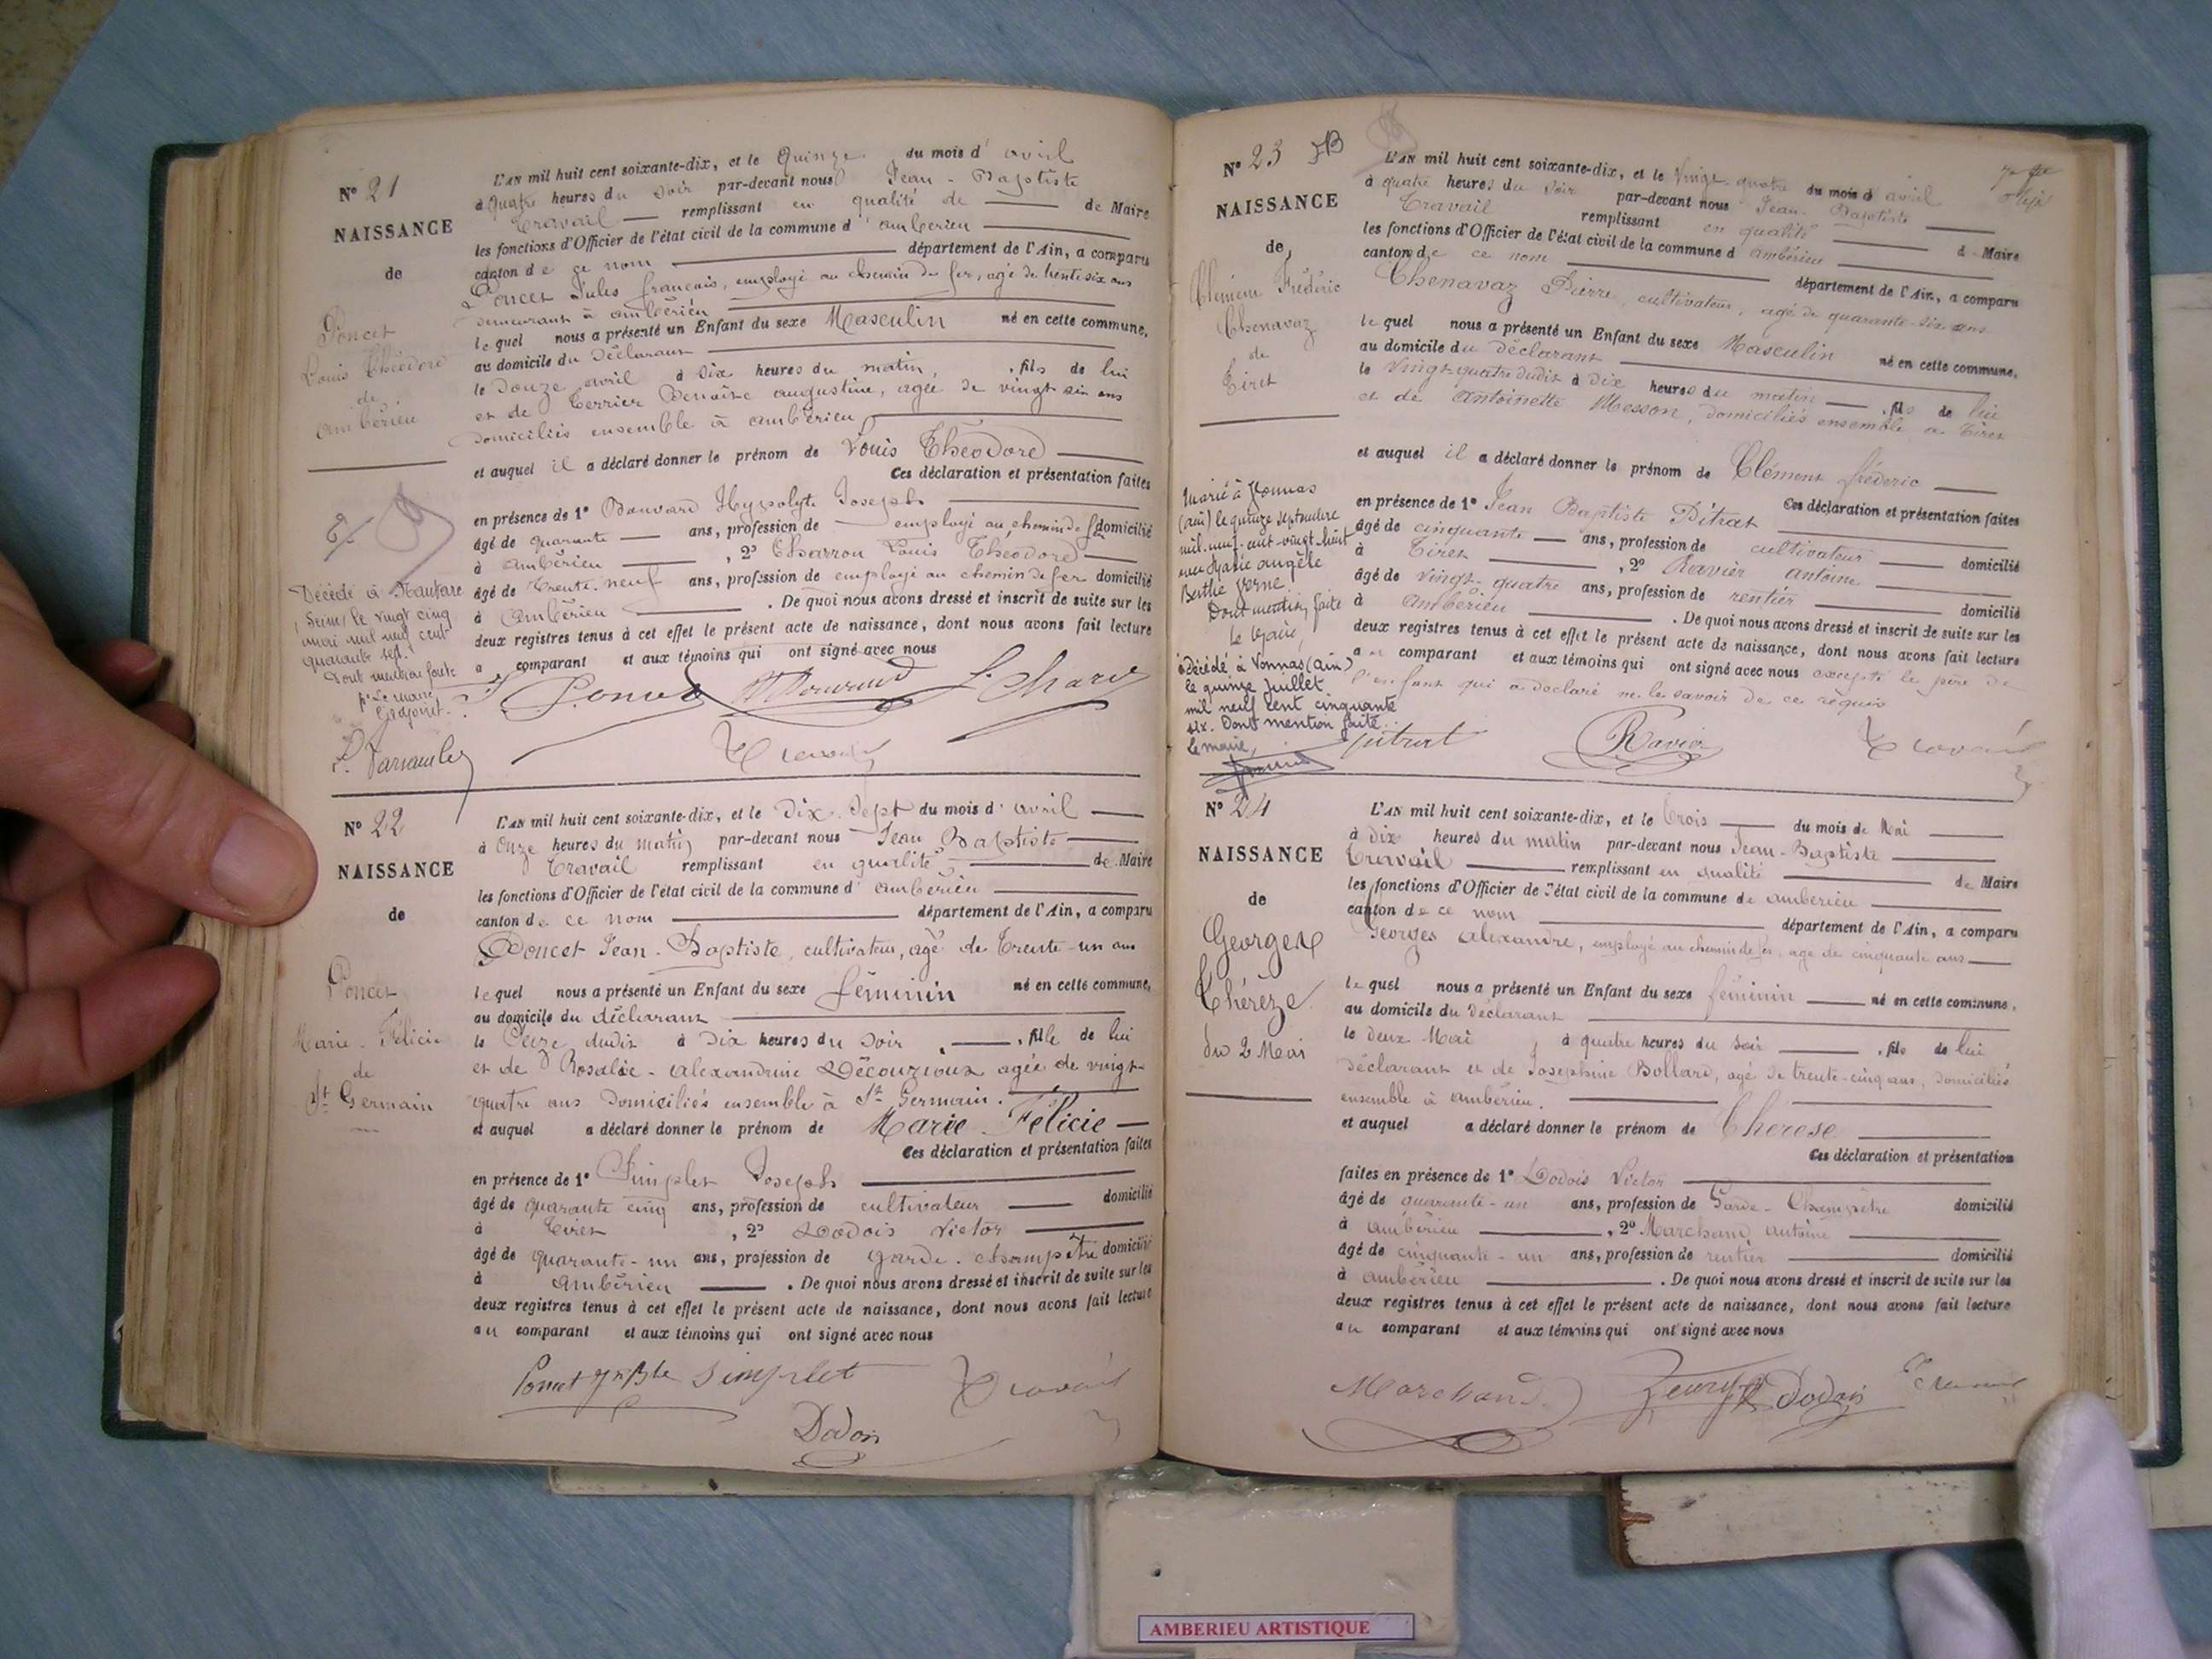 N° 21
NAISSANCE
de
Poncet
Louis Théodore
de
Ambérieu
L'AN mil huit cent soixante-dix, et le Quinze du mois d' avril
à quatre heures du soir par-devant nous Jean-Baptiste
Travail remplissant en qualité de de Maire
les fonctions d'Officier de l'état civil de la commune d' ambérieu
canton de ce nom département de l'Ain, a comparu
Poncet Jules français, employé au chemin de fer, agé de trente six ans
demeurant à ambérieu
lequel nous a présenté un Enfant du sexe Masculin né en cette commune,
au domicile du déclarant
le douze avril à dix heures du matin, , fils de lui
et de Terrier Benoite augustine, agée de vingt six ans
domiciliés ensemble à ambérieu
et auquel il a déclaré donner le prénom de Louis Théodore
Ces déclaration et présentation faites
en présence de 1° Bouvard Hyppolyte Joseph
âgé de quarante ans, profession de employé au chemin de fer domicilié
à ambérieu , 2° Charron Louis Théodore
âgé de trente-neuf ans, profession de employé au chemin de fer domicilié
à Ambérieu . De quoi nous avons dressé et inscrit de suite sur les
deux registres tenus à cet effet le présent acte de naissance, dont nous avons fait lecture
a comparant et aux témoins qui ont signé avec nous
Décédé à Nanterre
(Seine) le vingt cinq
mars mil neuf cent
quarante sept.
Dont mention faite
pr Le maire
Poncet Bouvard L. Charron
Travail
N° 22
NAISSANCE
de
Poncet
Marie-Félicie
de
St Germain
L'AN mil huit cent soixante-dix, et le Dix-Sept du mois d' avril
à Onze heures du matin par-devant nous Jean Baptiste
Travail remplissant en qualité de Maire
les fonctions d'Officier de l'état civil de la commune d' ambérieu
canton de ce nom département de l'Ain, a comparu
Poncet Jean-Baptiste, cultivateur, agé de Trente-un ans
lequel nous a présenté un Enfant du sexe féminin né en cette commune,
au domicile du déclarant
le Seize dudit à Dix heures du Soir , fille de lui
et de Rosalie-alexandrine Décourioux agée de vingt-
quatre ans domiciliés ensemble à St Germain.
et auquel a déclaré donner le prénom de Marie Félicie
Ces déclaration et présentation faites
en présence de 1° Simplet Joseph
âgé de quarante cinq ans, profession de cultivateur domicilié
à Tiret , 2° Dodois Victor
âgé de quarante-un ans, profession de garde-champêtre domicilié
à Ambérieu . De quoi nous avons dressé et inscrit de suite sur les
deux registres tenus à cet effet le présent acte de naissance, dont nous avons fait lecture
au comparant et aux témoins qui ont signé avec nous
Poncet Jn Bte Simplet Travail
Dodois
N° 23
NAISSANCE
de
Clément Fréderic
Chenavaz
de
Tiret
L'AN mil huit cent soixante-dix, et le Vingt-quatre du mois d avril
à quatre heures du soir par-devant nous Jean-Baptiste
Travail remplissant en qualité d Maire
les fonctions d'Officier de l'état civil de la commune d ambérieu
canton de ce nom département de l'Ain, a comparu
Chenavaz Pierre, cultivateur, agé de quarante-six ans
lequel nous a présenté un Enfant du sexe Masculin né en cette commune,
au domicile du déclarant
le Vingt quatre dudit à dix heures du matin , fils de lui
et de Antoinette Messon, domiciliés ensemble à Tiret
et auquel il a déclaré donner le prénom de Clément fréderic
Ces déclaration et présentation faites
en présence de 1° Jean Baptiste Pitrat
âgé de cinquante ans, profession de cultivateur domicilié
à Tiret , 2° Ravier antoine
âgé de vingt-quatre ans, profession de rentier domicilié
à Ambérieu . De quoi nous avons dressé et inscrit de suite sur les
deux registres tenus à cet effet le présent acte de naissance, dont nous avons fait lecture
au comparant et aux témoins qui ont signé avec nous excepté le père de
l'enfant qui a déclaré ne le savoir de ce requis
Marié à Vonnas
(ain) le quinze septembre
mil neuf cent vingt huit
avec Marie angèle
Berthe Verne.
Dont mention faite
le Maire
Décédé à Vonnas (ain)
le quinze juillet
mil neuf cent cinquante
six. Dont mention faite.
Le maire,
pitrat Ravier Travail
N° 24
NAISSANCE
de
Georges
Thérèze
du 2 Mai
L'AN mil huit cent soixante-dix, et le trois du mois de Mai
à dix heures du matin par-devant nous Jean-Baptiste
Travail remplissant en qualité de Maire
les fonctions d'Officier de l'état civil de la commune de ambérieu
canton de ce nom département de l'Ain, a comparu
Georges alexandre, employé au chemin de fer, agé de cinquante ans
lequel nous a présenté un Enfant du sexe féminin né en cette commune,
au domicile du déclarant
le deux Mai , à quatre heures du soir , fils de lui
déclarant et de Josephine Bollard, agé de trente-cinq ans, domiciliés
ensemble à ambérieu.
et auquel a déclaré donner le prénom de Thérèse
Ces déclaration et présentation
faites en présence de 1° Dodois Victor
âgé de quarante-un ans, profession de Garde-Champêtre domicilié
à ambérieu , 2° Marchand antoine
âgé de cinquante-un ans, profession de rentier domicilié
à ambérieu . De quoi nous avons dressé et inscrit de suite sur les
deux registres tenus à cet effet le présent acte de naissance, dont nous avons fait lecture
au comparant et aux témoins qui ont signé avec nous
Marchand Georges Dodois Travail
AMBERIEU ARTISTIQUE